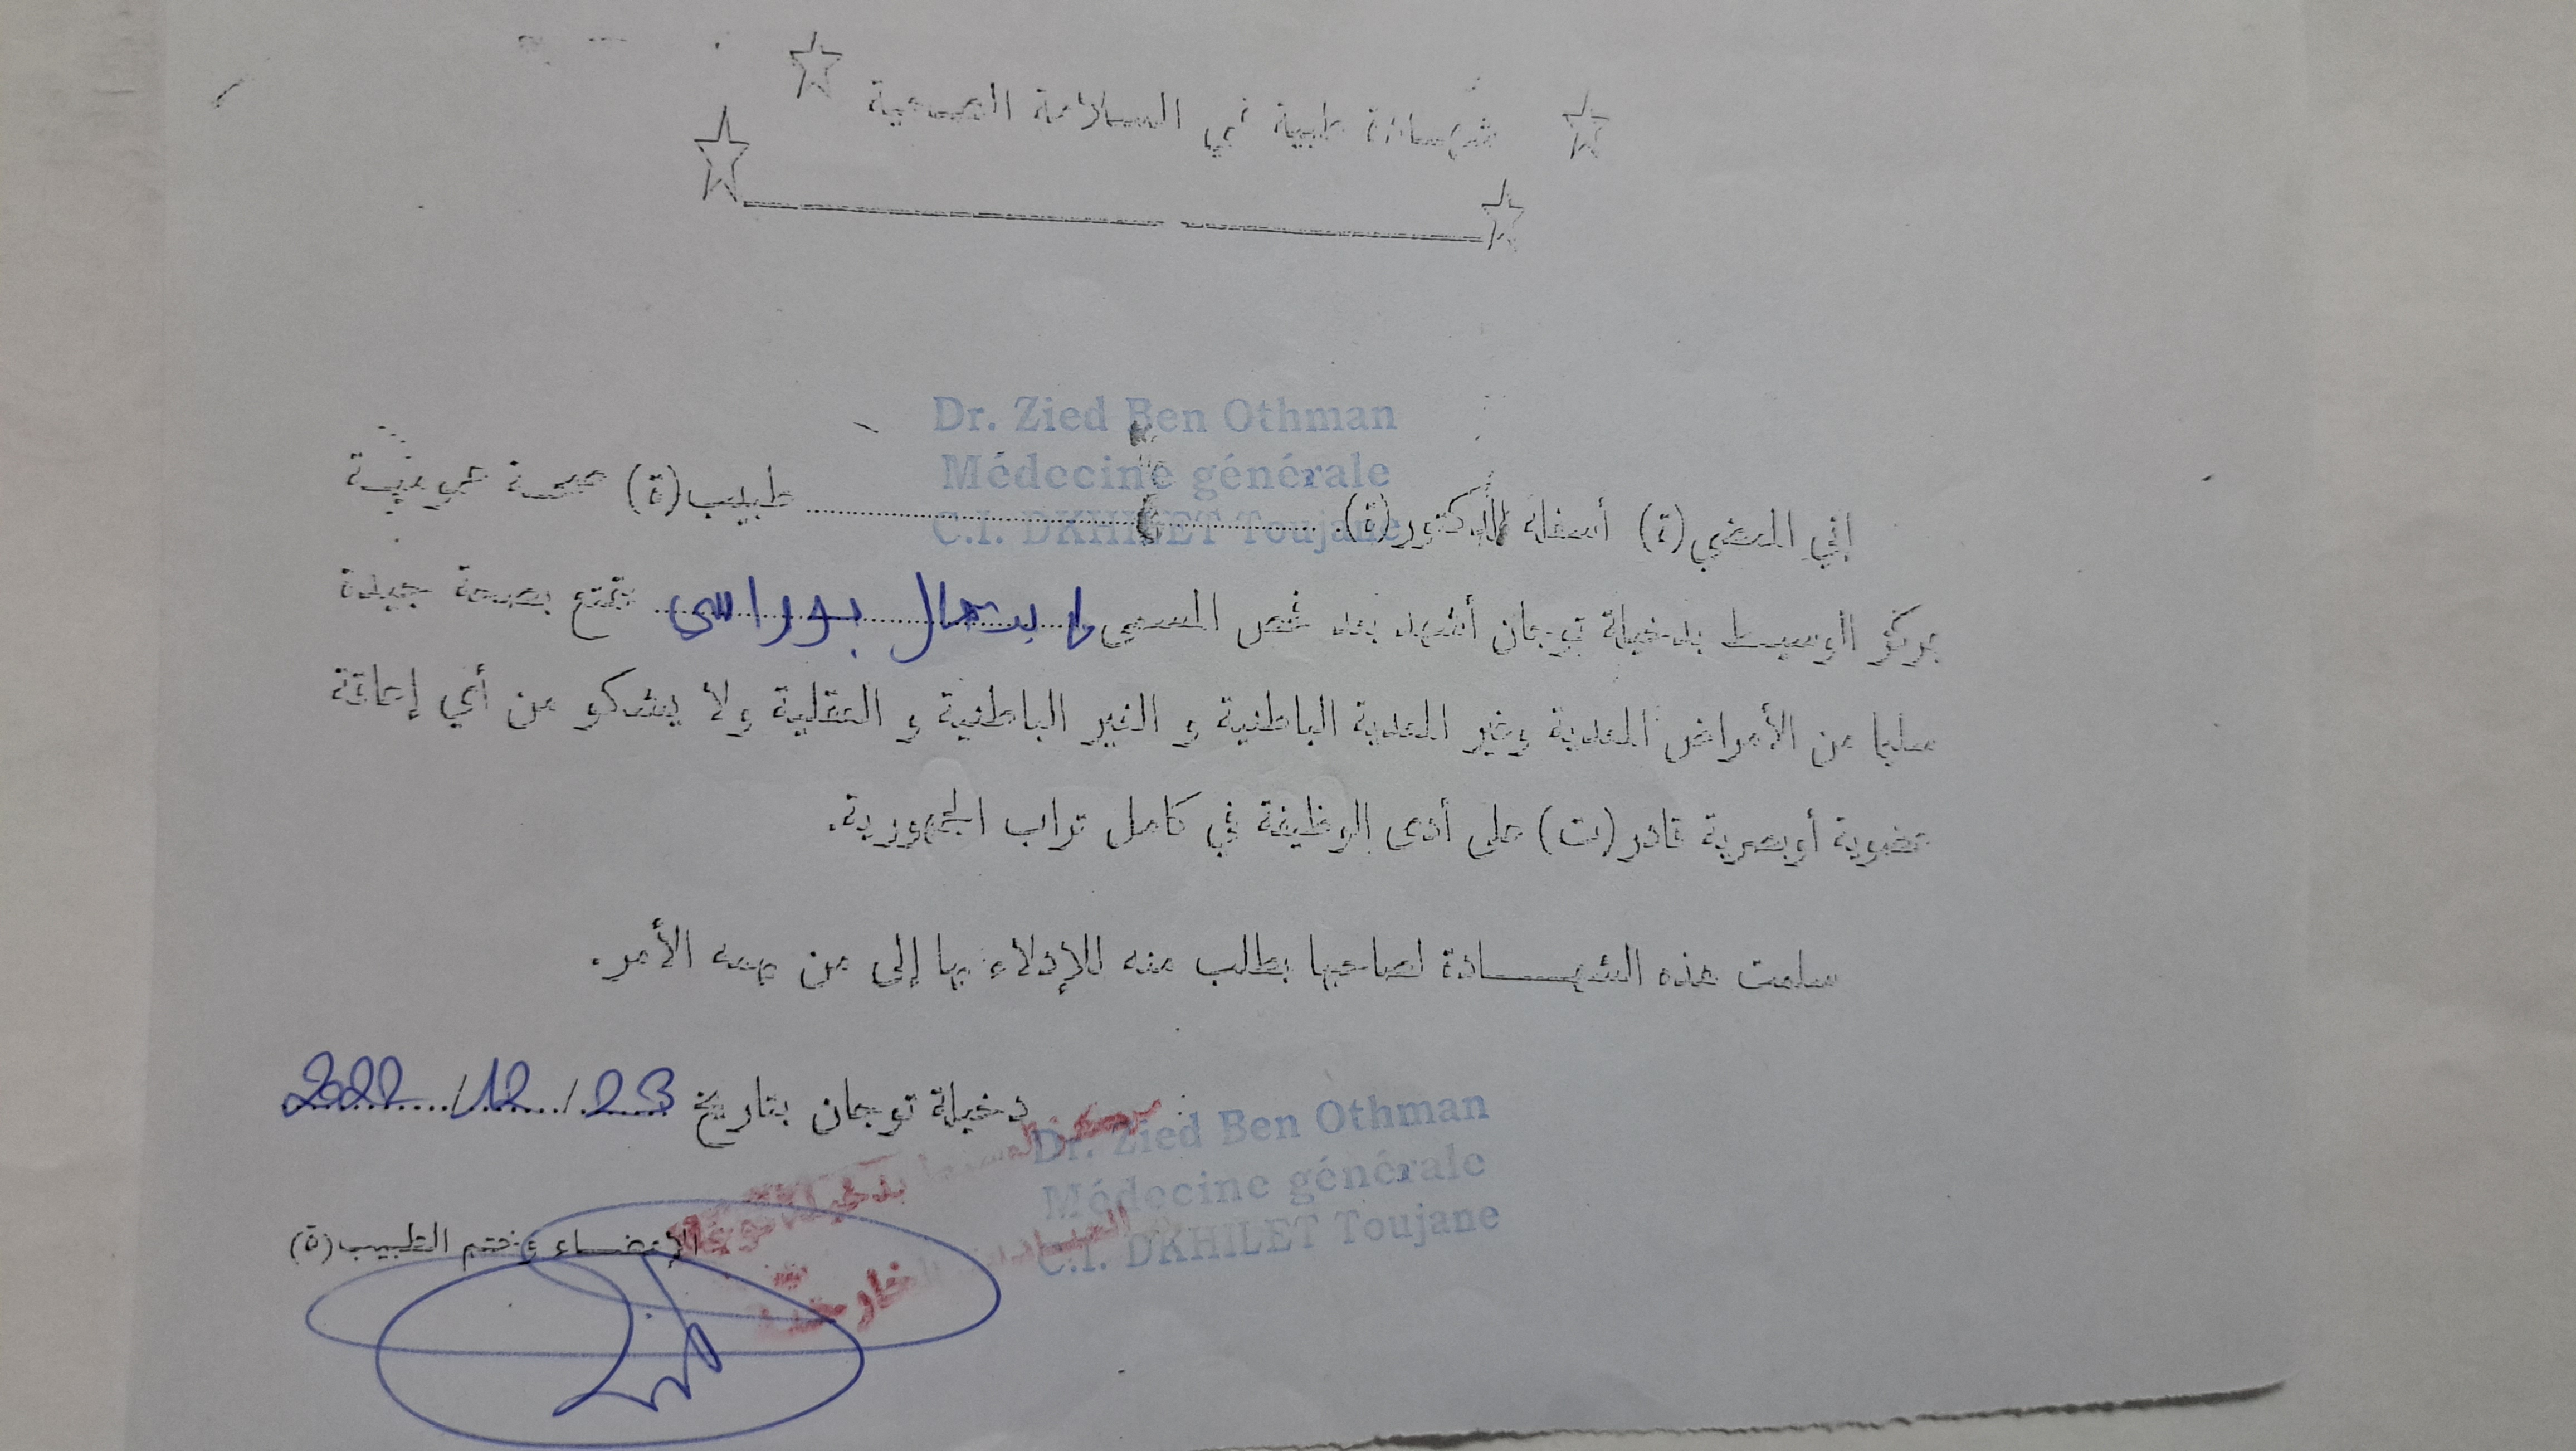 شهادة طبية في السلامة الصحية
Dr. Zied Ben Othman
Médecine générale
C.I. DKHILET Toujane
إني الممضي(ة) أسفله الدكتور(ة) طبيب(ة) صحة عمومية
بمركز الوسيط بدخيلة توجان أشهد بعد فحص المسمى بوراسي تمتع بصحة جيدة
سليما من الأمراض المعدية وغير المعدية الباطنية و الغير الباطنية و العقلية ولا يشكو من أي إعاقة
عضوية أوبصرية قادر(ت) على أدى الوظيفة في كامل تراب الجمهورية.
سلمت هذه الشهادة لصاحبها بطلب منه للإدلاء بها إلى من يهمه الأمر.
دخيلة توجان بتاريخ 23/12/2022
Dr. Zied Ben Othman
Médecine générale
C.I. DKHILET Toujane
الإمضاء وختم الطبيب(ة)